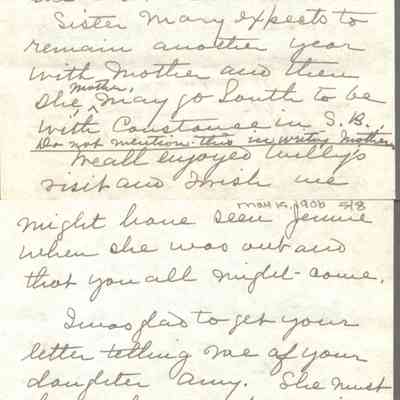 Sister Mary expects to
remain another year
with Mother and then
she, Mother, may go South to be
with Constance in S.B.
Do not mention this in writing Mother
We all enjoyed Willy's
visit and wish we
Mar 19, 1906 5/8
might have seen Jennie
when she was out and
that you all might come.
I was glad to get your
letter telling me of your
daughter Amy. She must